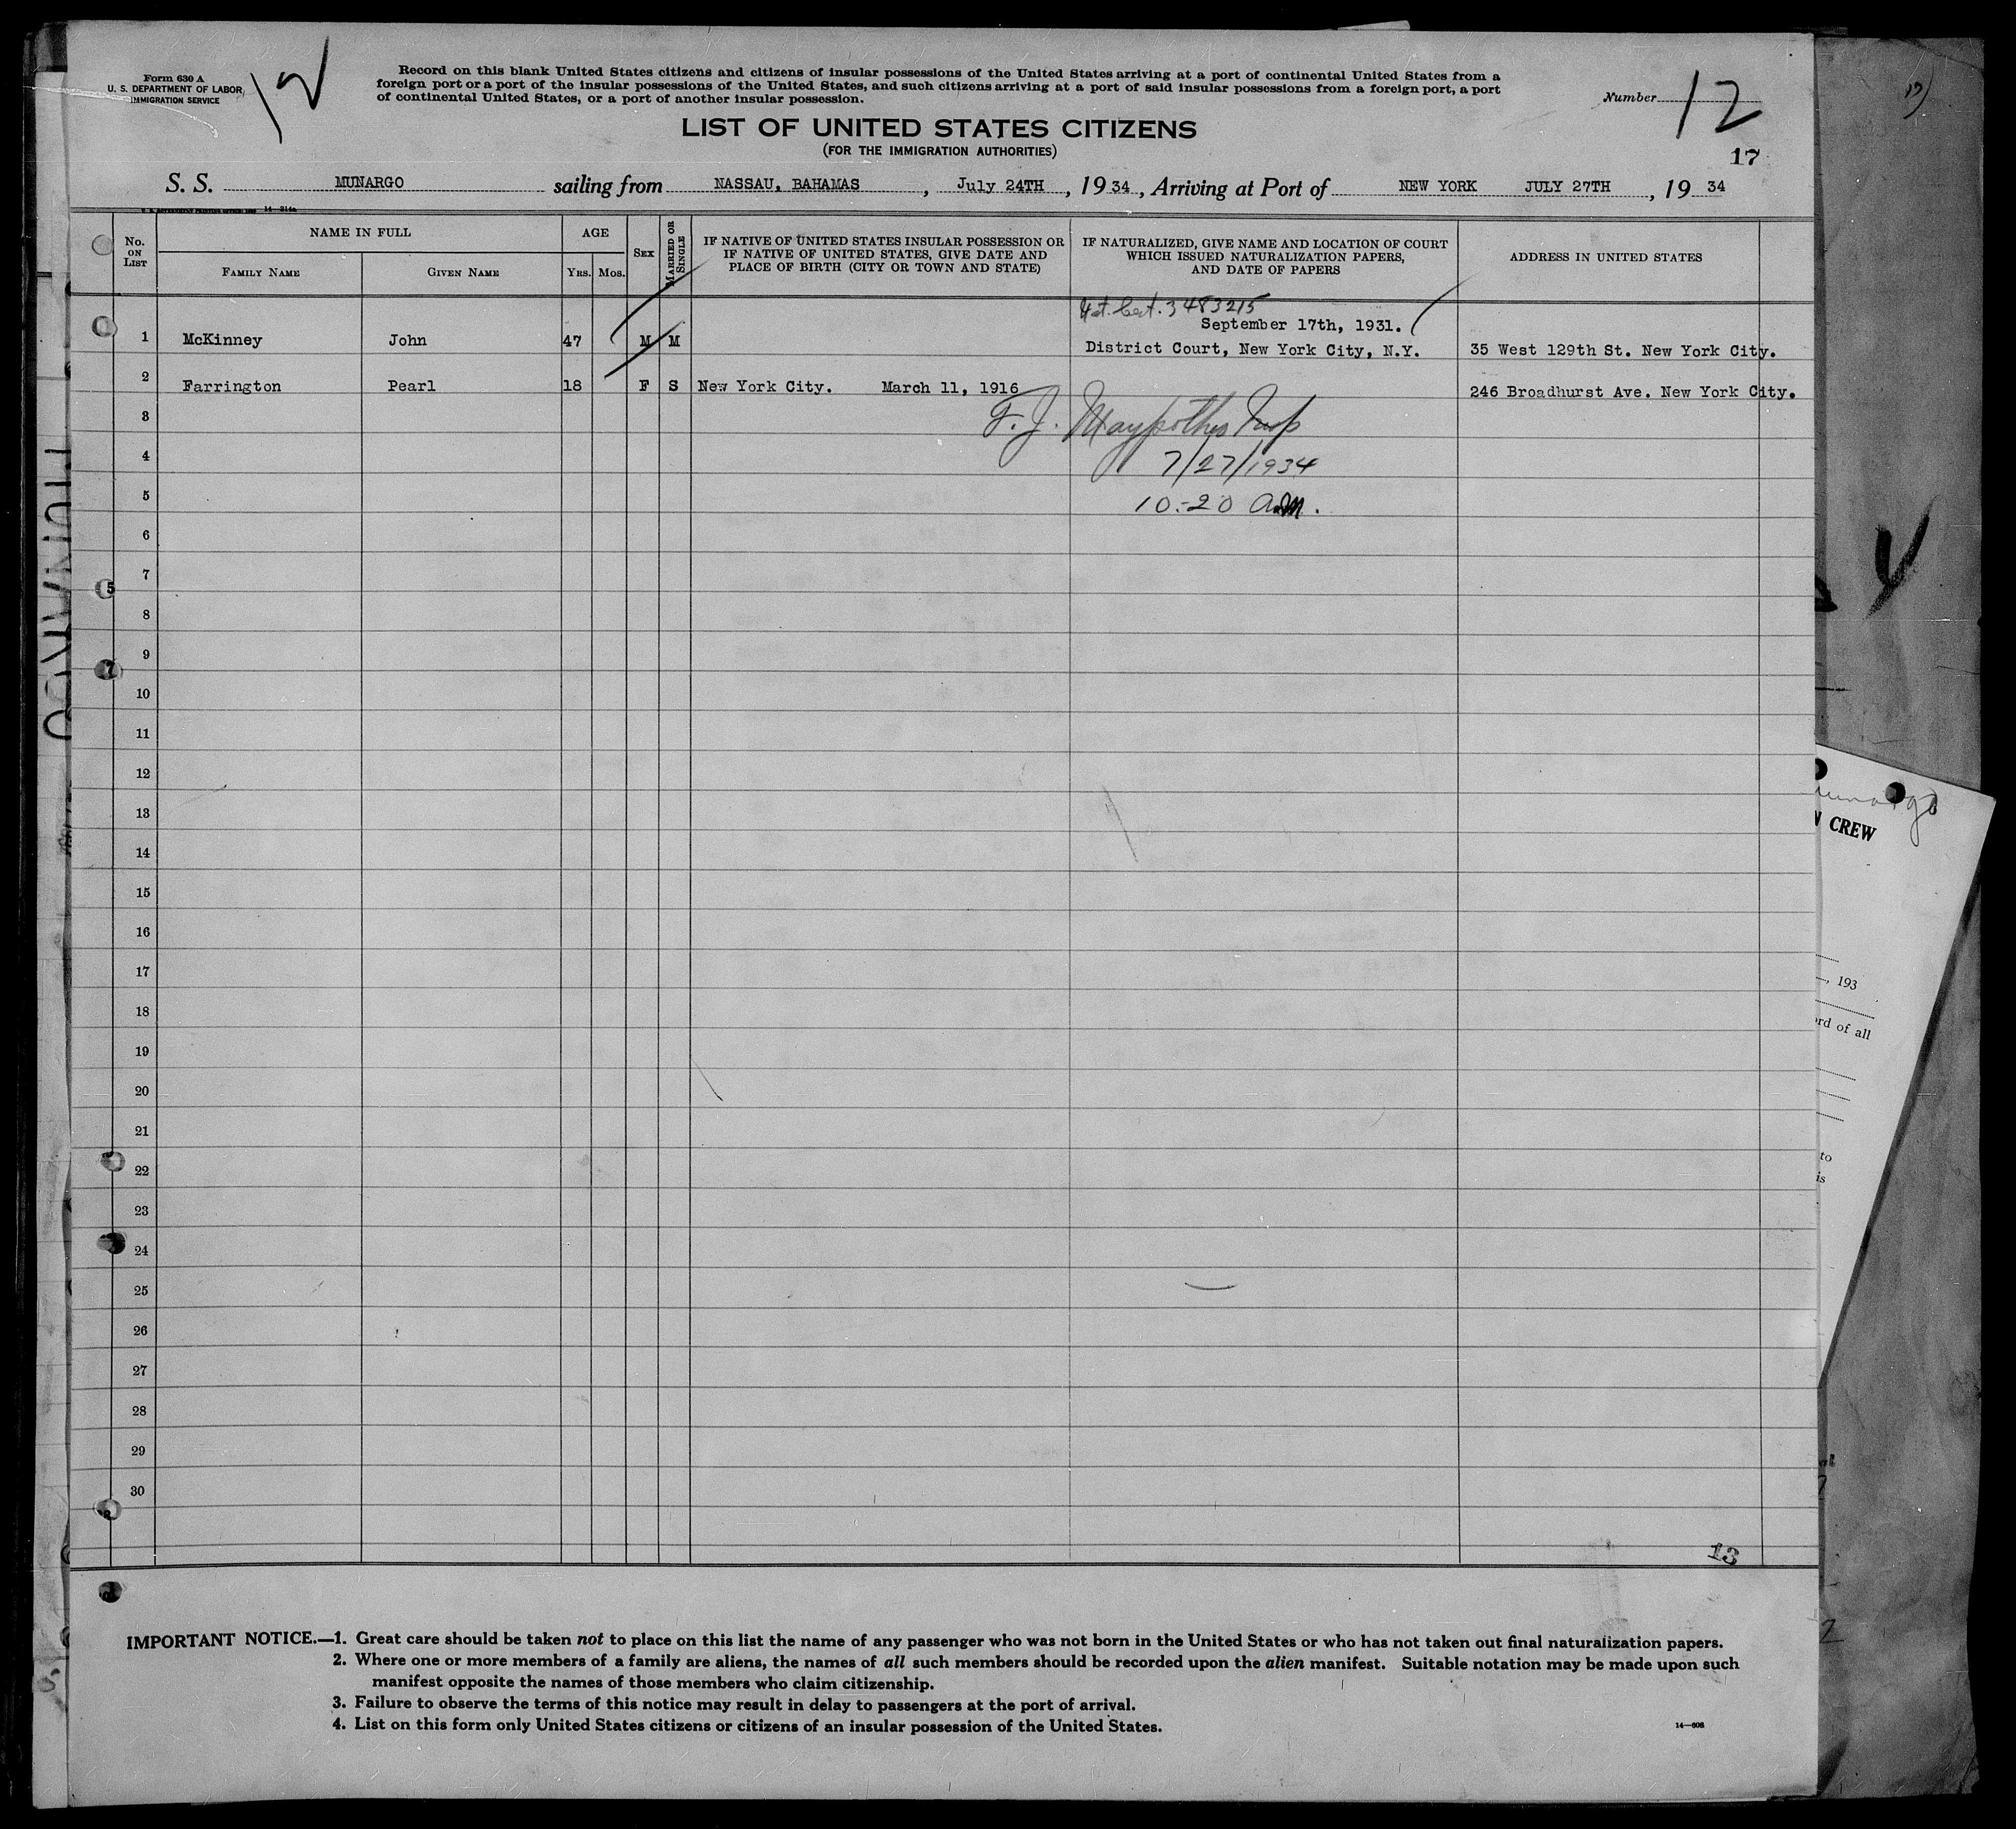 Form 630 A
U. S. DEPARTMENT OF LABOR
IMMIGRATION SERVICE
12
Record on this blank United States citizens and citizens of insular possessions of the United States arriving at a port of continental United States from a
foreign port or a port of the insular possessions of the United States, and such citizens arriving at a port of said insular possessions from a foreign port, a port
of continental United States, or a port of another insular possession.
Number 12
LIST OF UNITED STATES CITIZENS
(FOR THE IMMIGRATION AUTHORITIES)
17
S. S. MUNARGO sailing from NASSAU, BAHAMAS, July 24TH, 1934, Arriving at Port of NEW YORK JULY 27TH, 1934
No. ON LIST
NAME IN FULL
FAMILY NAME
GIVEN NAME
AGE
YRS. MOS.
SEX
MARRIED OR SINGLE
IF NATIVE OF UNITED STATES INSULAR POSSESSION OR
IF NATIVE OF UNITED STATES, GIVE DATE AND
PLACE OF BIRTH (CITY OR TOWN AND STATE)
IF NATURALIZED, GIVE NAME AND LOCATION OF COURT
WHICH ISSUED NATURALIZATION PAPERS,
AND DATE OF PAPERS
ADDRESS IN UNITED STATES
Nat. Cert. 3483215
September 17th, 1931.
1 McKinney John 47 M M District Court, New York City, N.Y. 35 West 129th St. New York City.
2 Farrington Pearl 18 F S New York City. March 11, 1916 246 Broadhurst Ave. New York City.
3
F. J. Insp
4
7/27/1934
5
10:20 AM.
6
7
8
9
10
11
12
13
14
15
16
17
18
19
20
21
22
23
24
25
26
27
28
29
30
13
IMPORTANT NOTICE.—1. Great care should be taken not to place on this list the name of any passenger who was not born in the United States or who has not taken out final naturalization papers.
2. Where one or more members of a family are aliens, the names of all such members should be recorded upon the alien manifest. Suitable notation may be made upon such
manifest opposite the names of those members who claim citizenship.
3. Failure to observe the terms of this notice may result in delay to passengers at the port of arrival.
4. List on this form only United States citizens or citizens of an insular possession of the United States.
14—608
CREW
, 193
of all
to
is